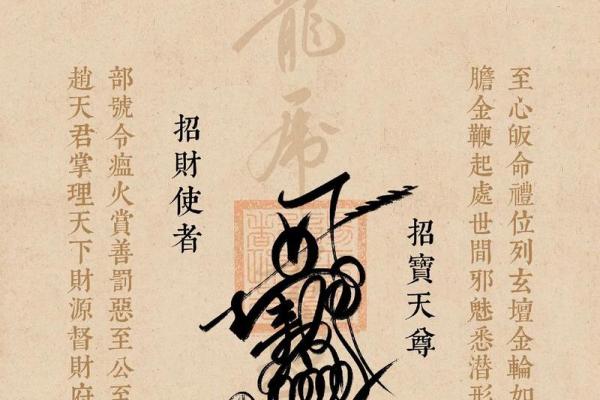 至心皈命禮位列玄壇金輪如
膽金鞭起處世間邪魅悉潜形
招寶天尊
龍虎
招財使者
部號令瘟火賞善罰惡至公至
趙天君掌理天下財源督財府